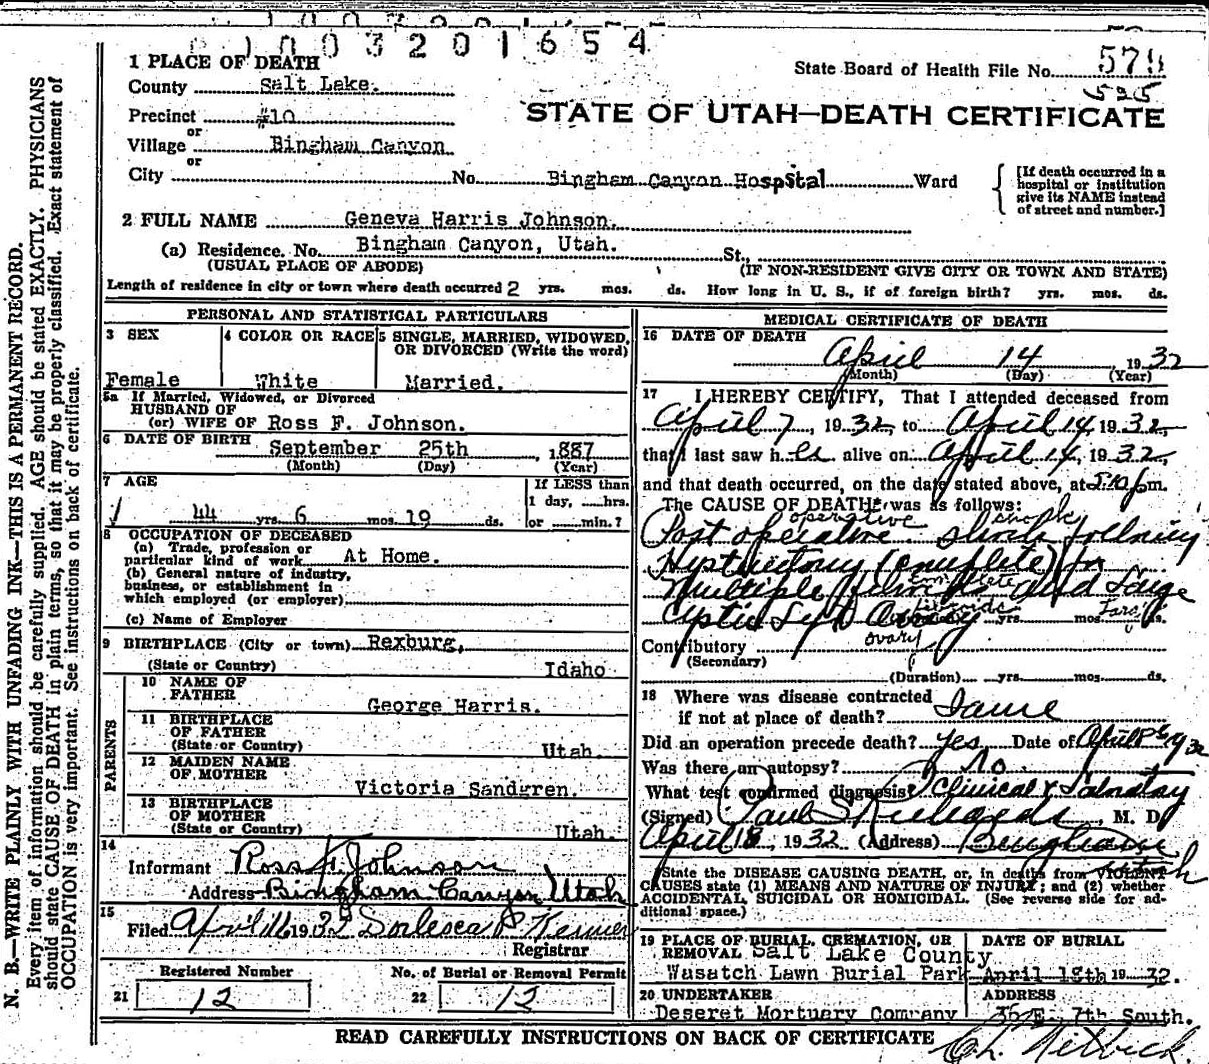 1003201654
1 PLACE OF DEATH
State Board of Health File No. 579
525
County Salt Lake.
STATE OF UTAH—DEATH CERTIFICATE
Precinct #10
or
Village Bingham Canyon
or
City No. Bingham Canyon Hospital Ward
[If death occurred in a hospital or institution give its NAME instead of street and number.]
2 FULL NAME Geneva Harris Johnson.
(a) Residence, No. Bingham Canyon, Utah. St.,
(USUAL PLACE OF ABODE) (IF NON-RESIDENT GIVE CITY OR TOWN AND STATE)
Length of residence in city or town where death occurred 2 yrs. mos. ds. How long in U. S., if of foreign birth? yrs. mos. ds.
PERSONAL AND STATISTICAL PARTICULARS
3 SEX 4 COLOR OR RACE 5 SINGLE, MARRIED, WIDOWED, OR DIVORCED (Write the word)
Female White Married.
5a If Married, Widowed, or Divorced
HUSBAND OF
(or) WIFE OF Ross F. Johnson.
6 DATE OF BIRTH September 25th, 1887
(Month) (Day) (Year)
7 AGE If LESS than
1 day, hrs.
44 yrs. 6 mos. 19 ds. or min.?
8 OCCUPATION OF DECEASED
(a) Trade, profession or
particular kind of work At Home.
(b) General nature of industry,
business, or establishment in
which employed (or employer)
(c) Name of Employer
9 BIRTHPLACE (City or town) Rexburg,
(State or Country) Idaho
PARENTS
10 NAME OF
FATHER George Harris.
11 BIRTHPLACE
OF FATHER
(State or Country) Utah.
12 MAIDEN NAME
OF MOTHER Victoria Sandgren.
13 BIRTHPLACE
OF MOTHER
(State or Country) Utah.
14
Informant Ross F. Johnson
Address Bingham Canyon Utah
15
Filed April 16 1932
Registrar
Registered Number No. of Burial or Removal Permit
21 12 22 12
MEDICAL CERTIFICATE OF DEATH
16 DATE OF DEATH
April 14 1932
(Month) (Day) (Year)
17 I HEREBY CERTIFY, That I attended deceased from
April 7, 1932, to April 14, 1932,
that I last saw her alive on April 14, 1932,
and that death occurred, on the date stated above, at 5:10 pm.
The CAUSE OF DEATH* was as follows:
operative shock
Post operative shock following
Hysterectomy (complete) for
complete
Multiple fibroids and Large
fibroids
Cystic Left Ovary yrs. mos. ds.
ovary
Contributory
(Secondary)
(Duration) yrs. mos. ds.
18 Where was disease contracted
if not at place of death? Same
Did an operation precede death? yes Date of April 1932
Was there an autopsy? no
What test confirmed diagnosis? Clinical & Laboratory
(Signed) Paul S Richards, M. D.
April 18, 1932 (Address) Bingham
Utah
*State the DISEASE CAUSING DEATH, or, in deaths from VIOLENT
CAUSES state (1) MEANS AND NATURE OF INJURY; and (2) whether
ACCIDENTAL, SUICIDAL OR HOMICIDAL. (See reverse side for additional space.)
19 PLACE OF BURIAL, CREMATION, OR REMOVAL Salt Lake County DATE OF BURIAL
Wasatch Lawn Burial Park April 18th 1932.
20 UNDERTAKER ADDRESS
Deseret Mortuary Company 36 E. 7th South.
READ CAREFULLY INSTRUCTIONS ON BACK OF CERTIFICATE
N. B.—WRITE PLAINLY WITH UNFADING INK—THIS IS A PERMANENT RECORD.
Every item of information should be carefully supplied. AGE should be stated EXACTLY. PHYSICIANS
should state CAUSE OF DEATH in plain terms, so that it may be properly classified. Exact statement of
OCCUPATION is very important. See instructions on back of certificate.